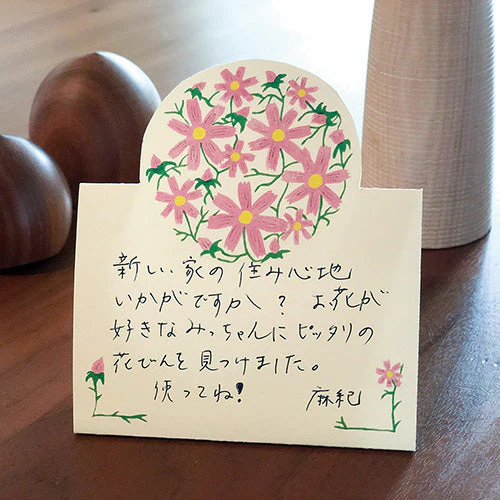 新しい家の住み心地
いかがですか？ お花が
好きなみっちゃんにピッタリの
花びんを見つけました。
使ってね！ 麻紀